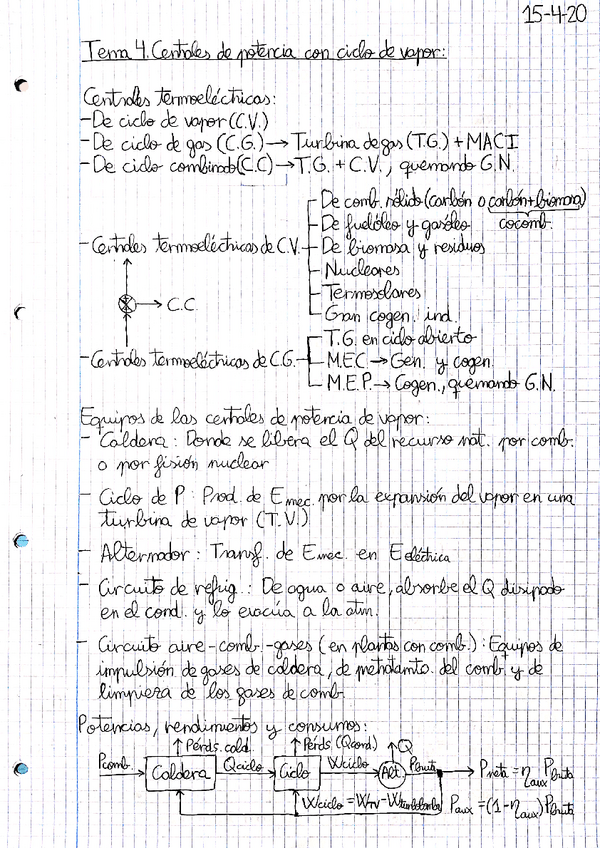 15-4-20
Tema 4. Centrales de potencia con ciclo de vapor:
Centrales termoeléctricas:
-De ciclo de vapor (C.V.)
-De ciclo de gas (C.G.) → Turbina de gas (T.G.) + MACI
-De ciclo combinado (C.C) → T.G. + C.V., quemando G.N.
-Centrales termoeléctricas de C.V.
De comb. sólido (carbón o carbón+biomasa)
cocomb.
De fuelóleo y gasóleo
De biomasa y residuos
Nucleares
Termosolares
Gran cogen. ind.
→ C.C.
-Centrales termoeléctricas de C.G.
T.G. en ciclo abierto
M.E.C. → Gen. y cogen.
M.E.P. → Cogen., quemando G.N.
Equipos de las centrales de potencia de vapor:
- Caldera: Donde se libera el Q del recurso nat. por comb.
o por fisión nuclear
- Ciclo de P: Prod. de Emec. por la expansión del vapor en una
turbina de vapor (T.V.)
- Alternador: Transf. de Emec. en Eeléctrica
- Circuito de refrig.: De agua o aire, absorbe el Q disipado
en el cond. y lo evacúa a la atm.
- Circuito aire-comb.-gases (en plantas con comb.): Equipos de
impulsión de gases de caldera, de pretratamto. del comb. y de
limpieza de los gases de comb.
Potencias, rendimientos y consumos:
↑ Pérds. cald. ↑ Pérds. (Qcond.) ↑ Q
Pcomb. Caldera Qciclo Ciclo Wciclo Alt. Pbruta → Pneta = ηaux Pbruta
Wciclo = WTV - Wturbobomba Paux = (1-ηaux) Pbruta